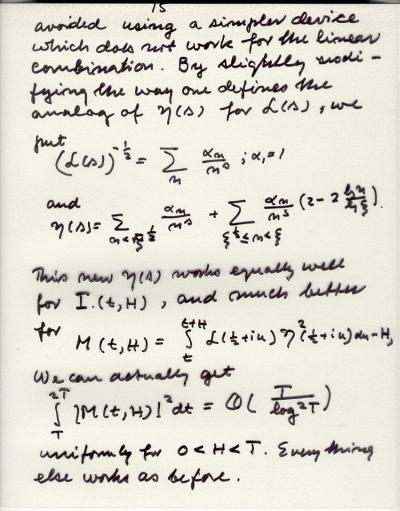 15
avoided using a simpler device
which does not work for the linear
combination. By slightly modi-
fying the way one defines the
analog of η(s) for L(s), we
put
(L(s))^{-1/2} = Σ_n α_n/n^s ; α_1 = 1
and
η(s) = Σ_{n<ξ^{1/2}} α_n/n^s + Σ_{ξ^{1/2}≤n<ξ} α_n/n^s (2 - 2 log n/log ξ).
This new η(s) works equally well
for I(t,H), and much better
for
M(t,H) = ∫_t^{t+H} L(½+iu) η²(½+iu)du - H,
We can actually get
∫_T^{2T} |M(t,H)|² dt = O( T/log²T )
uniformly for 0<H<T. Everything
else works as before.